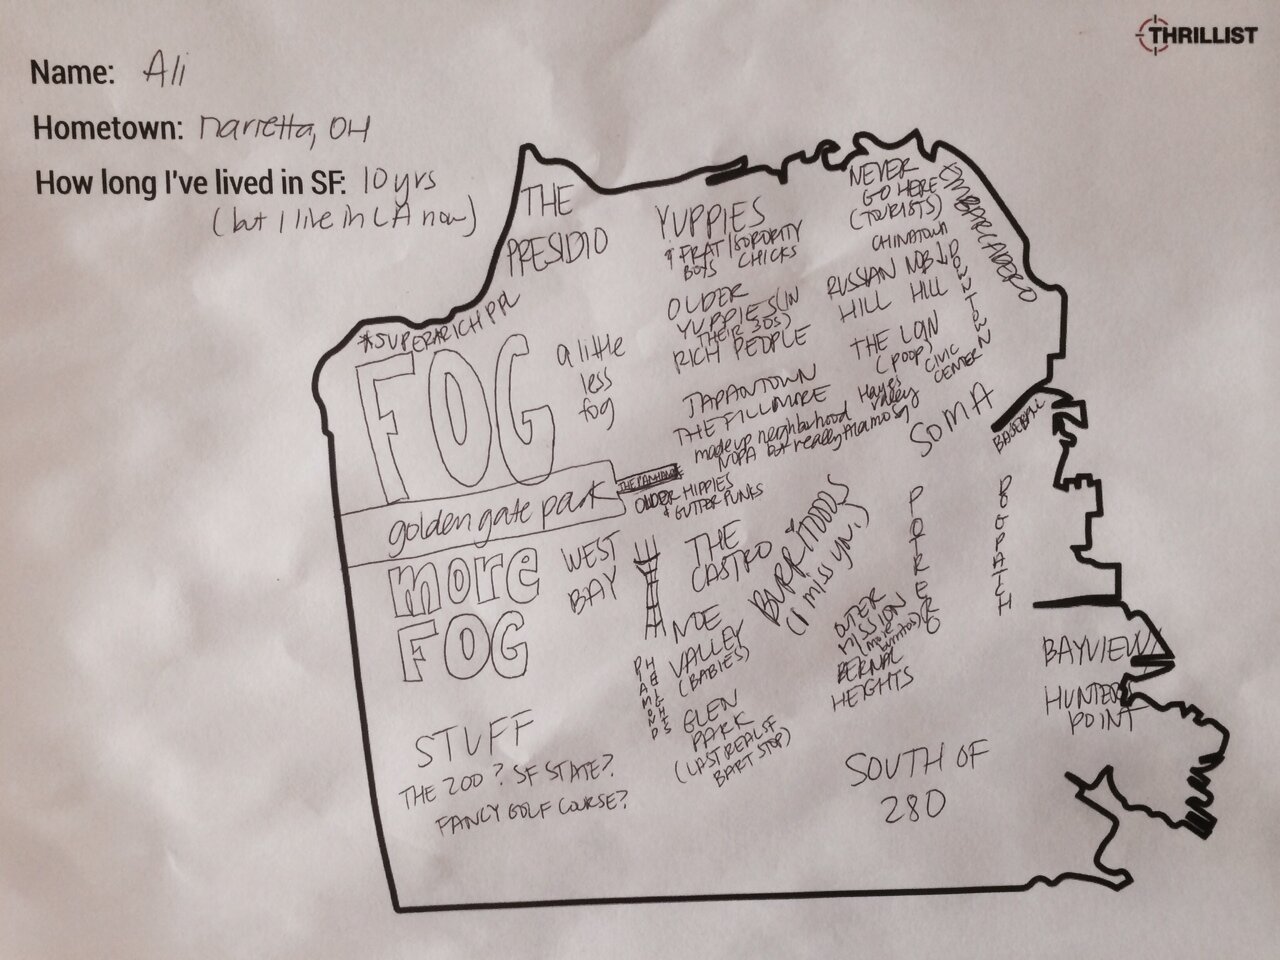 THRILLIST
Name: Ali
Hometown: Marietta, OH
How long I've lived in SF: 10 yrs
(but I live in LA now)
THE
PRESIDIO
*SUPER RICH PPL
FOG
a little
less
fog
golden gate park
THE PANHANDLE
more
FOG
WEST
BAY
STUFF
THE ZOO? SF STATE?
FANCY GOLF COURSE?
YUPPIES
& FRAT/SORORITY
BOYS CHICKS
OLDER
YUPPIES (IN
THEIR 30S)
RICH PEOPLE
JAPANTOWN
THE FILLMORE
made up neighborhood
NOPA but really Alamo Sq
Hayes
Valley
OLDER HIPPIES
& GUTTER PUNKS
NEVER
GO HERE
(TOURISTS)
CHINATOWN
EMBARCADERO
RUSSIAN
HILL
NOB
HILL
DOWNTOWN
THE LOIN
(POOP)
CIVIC
CENTER
SOMA
BASEBALL
THE
CASTRO
BURRITOOOOS
(I miss you)
NOE
VALLEY
(BABIES)
GLEN
PARK
(LAST REAL SF
BART STOP)
DIAMOND
HEIGHTS
OUTER
MISSION
(more
burritos)
BERNAL
HEIGHTS
POTRERO
DOGPATCH
BAYVIEW/
HUNTERS
POINT
SOUTH OF
280